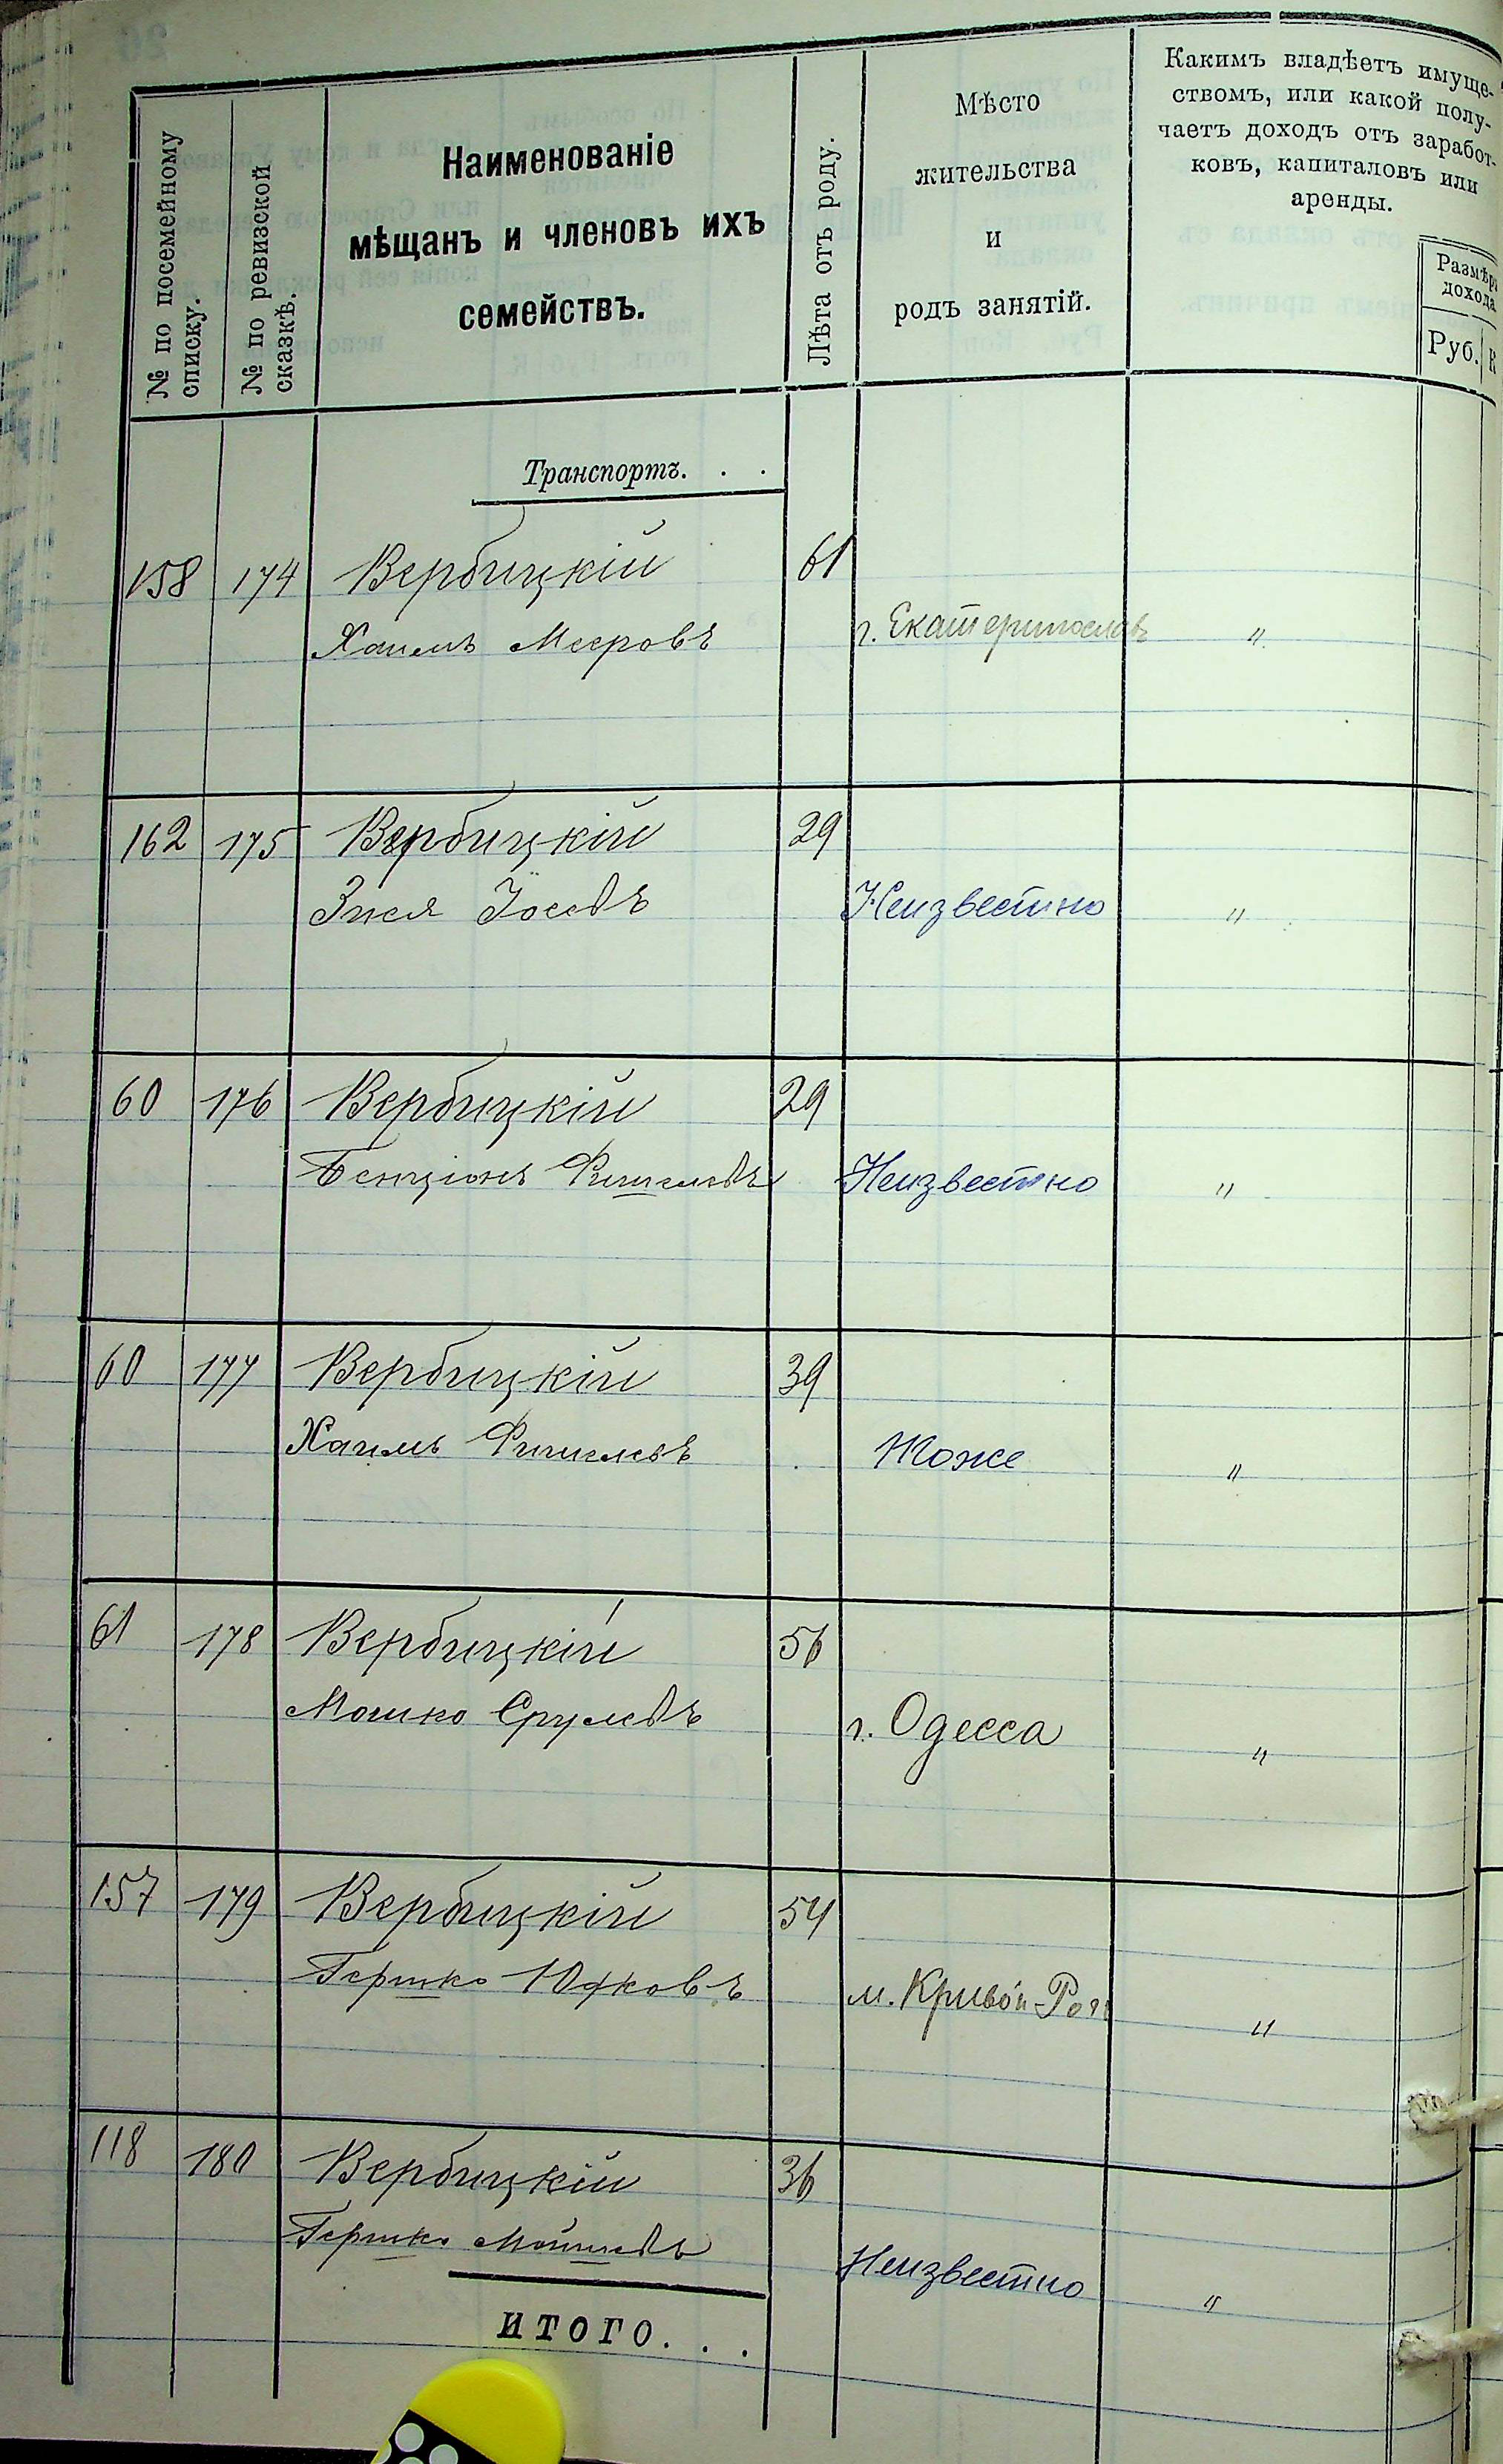 № по посемейному
списку.
№ по ревизской
сказкѣ.
Наименованіе
мѣщанъ и членовъ ихъ
семействъ.
Лѣта отъ роду.
Мѣсто
жительства
и
родъ занятій.
Какимъ владѣетъ имуще-
ствомъ, или какой полу-
чаетъ доходъ отъ заработ-
ковъ, капиталовъ или
аренды.
Размѣръ
дохода
Руб.
Транспортъ. . .
158 174 Вербицкій 61
Хаимъ Мееровъ г. Екатеринославъ "
162 175 Вербицкій 29
Зися Іосевъ Неизвестно "
60 176 Вербицкій 29
Бенціонъ Фишелевъ Неизвестно "
60 177 Вербицкій 39
Хаимъ Фишелевъ Тоже "
61 178 Вербицкій 56
Мошко Срулевъ г. Одесса "
157 179 Вербицкій 54
Гершко Юдковъ м. Кривой-Рогъ "
118 180 Вербицкій 36
Гершко Мойшевъ Неизвестно "
ИТОГО. . .